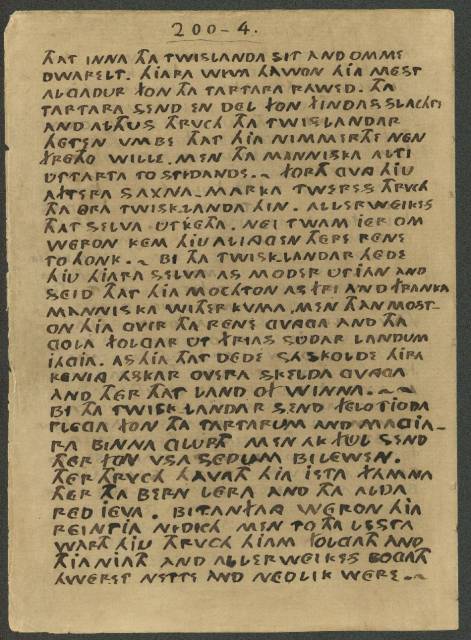 200-4.
THAT INNA THA TWISLANDA SIT AND OMME
DWARELT. HIARA WIVA HAWON HIA MEST
ALGADUR FON THA TARTARA RAWED. THA
TARTARA SEND EN DEL FON FINDAS SLACHTE
AND ALTHUS THRVCH THA TWISLANDAR
HETEN VMBE THAT HIA NIMMERTHE NEN
FRETHO WILLE. MEN THA MANNISKA ALTI
UTTARTA TO STRIDANDE. ~ FORTH GVNG HIU
AFTERA SAXNA-MARKA TWERES THRVCH
THA ORA TWISK-LANDA HIN. ALLERWEIKES
THAT SELVA UTKETHA. NEI TWAM IER OM
WERON KEM HIU ALINGEN THERE RENE
TO HONK. ~ BI THA TWISKLANDAR HEDE
HIU HIARA SELVA AS MODER UTIAN AND
SEID THAT HIA MOCHTON AS FRI AND FRANKA
MANNISKA WITHER KVMA, MEN THAN MOST-
ON HIA OVIR THA RENE GVNGA AND THA
GOLA FOLGAR UT FRIAS SUDAR LANDUM
IAGIA. AS HIA THAT DEDE SA SKOLDE HIRA
KENING ASKAR OVERA SKELDA GVNGA
AND THER THAT LAND OF WINNA. ~ ~
BI THA TWISK LANDAR SEND FELO TIODA
PLEGA FON THA TARTARUM AND MAGIA-
RA BINNA GLUPTH MEN AK FUL SEND
THER FON VSA SEDUM BILEWEN.
THER THRVCH HAVATH HIA IETA FAMNA
THER THA BERN LERA AND THA ALDA
RED IEVA. BITANFANG WERON HIA
REINTIA NIDICH MEN TO THA LESTA
WARTH HIU THRVCH HIAM FOLGATH AND
THIANIATH AND ALLERWEIKES BOGATH
HWERET NETTE AND NEDLIK WERE. ~